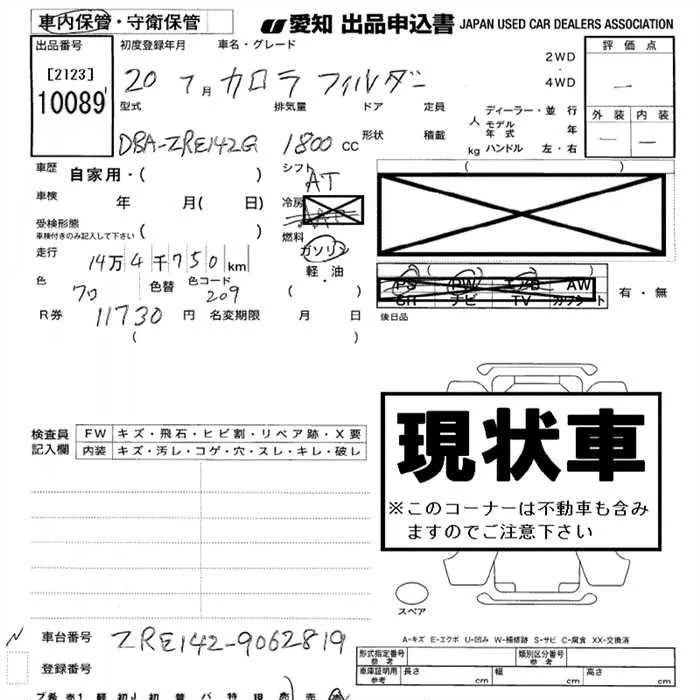 車内保管・守衛保管
愛知 出品申込書 JAPAN USED CAR DEALERS ASSOCIATION
出品番号 初度登録年月 車名・グレード 2WD 評価点
[2123] 20 7月 カロラ フィルダー ・ 4WD 一
10089
型式 排気量 ドア 定員 ディーラー・並行 外装 内装
人 モデル年式 年 一 一
DBA-ZRE142G 1800cc 形状 積載 kg ハンドル 左・右
車歴 自家用・( ) シフト AT
車検 年 月( 日) 冷房
受検形態 ( ) 燃料
車検付きのみ記入して下さい
走行 14万4千750km ガソリン
軽油
色 色替 色コード ・
フロ 209 ( )
PS PW エアB AW
SR ナビ TV カワシート 有・無
R券 11730円 名変期限 月 日 後日品
( )
検査員記入欄 FW キズ・飛石・ヒビ割・リペア跡・X要
内装 キズ・汚レ・コゲ・穴・スレ・キレ・破レ
現状車
※このコーナーは不動車も含み
ますのでご注意下さい
スペア
A-キズ E-エクボ U-凹み W-補修跡 S-サビ C-腐食 XX-交換済
車台番号 ZRE142-9062819
形式指定番号 参考 類別区分番号 参考
登録番号 車庫証明用 参考 長さ cm 幅 cm 高さ cm